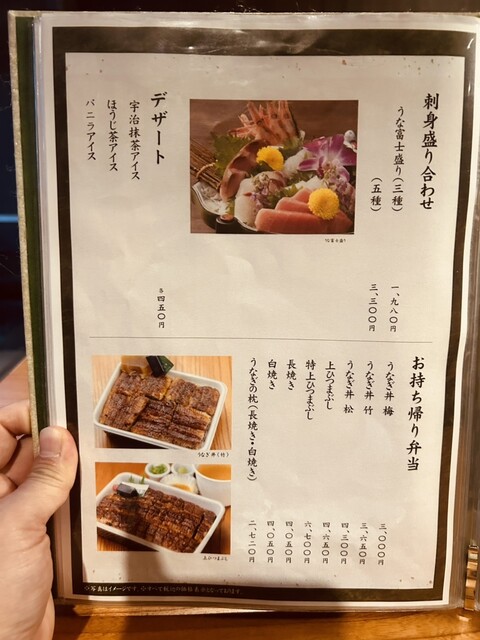 刺身盛り合わせ
うな富士盛り(三種) 一、九八〇円
(五種) 三、三〇〇円
うな富士盛り
デザート
宇治抹茶アイス 各 四五〇円
ほうじ茶アイス
バニラアイス
お持ち帰り弁当
うなぎ丼 梅 三、〇〇〇円
うなぎ丼 竹 三、六五〇円
うなぎ丼 松 四、三〇〇円
上ひつまぶし 四、六五〇円
特上ひつまぶし 六、七〇〇円
長焼き 四、〇五〇円
白焼き 四、〇五〇円
うなぎの枕(長焼き・白焼き) 二、七二〇円
うなぎ丼(竹)
上ひつまぶし
※写真はイメージです。※すべて税込の価格表示となっております。